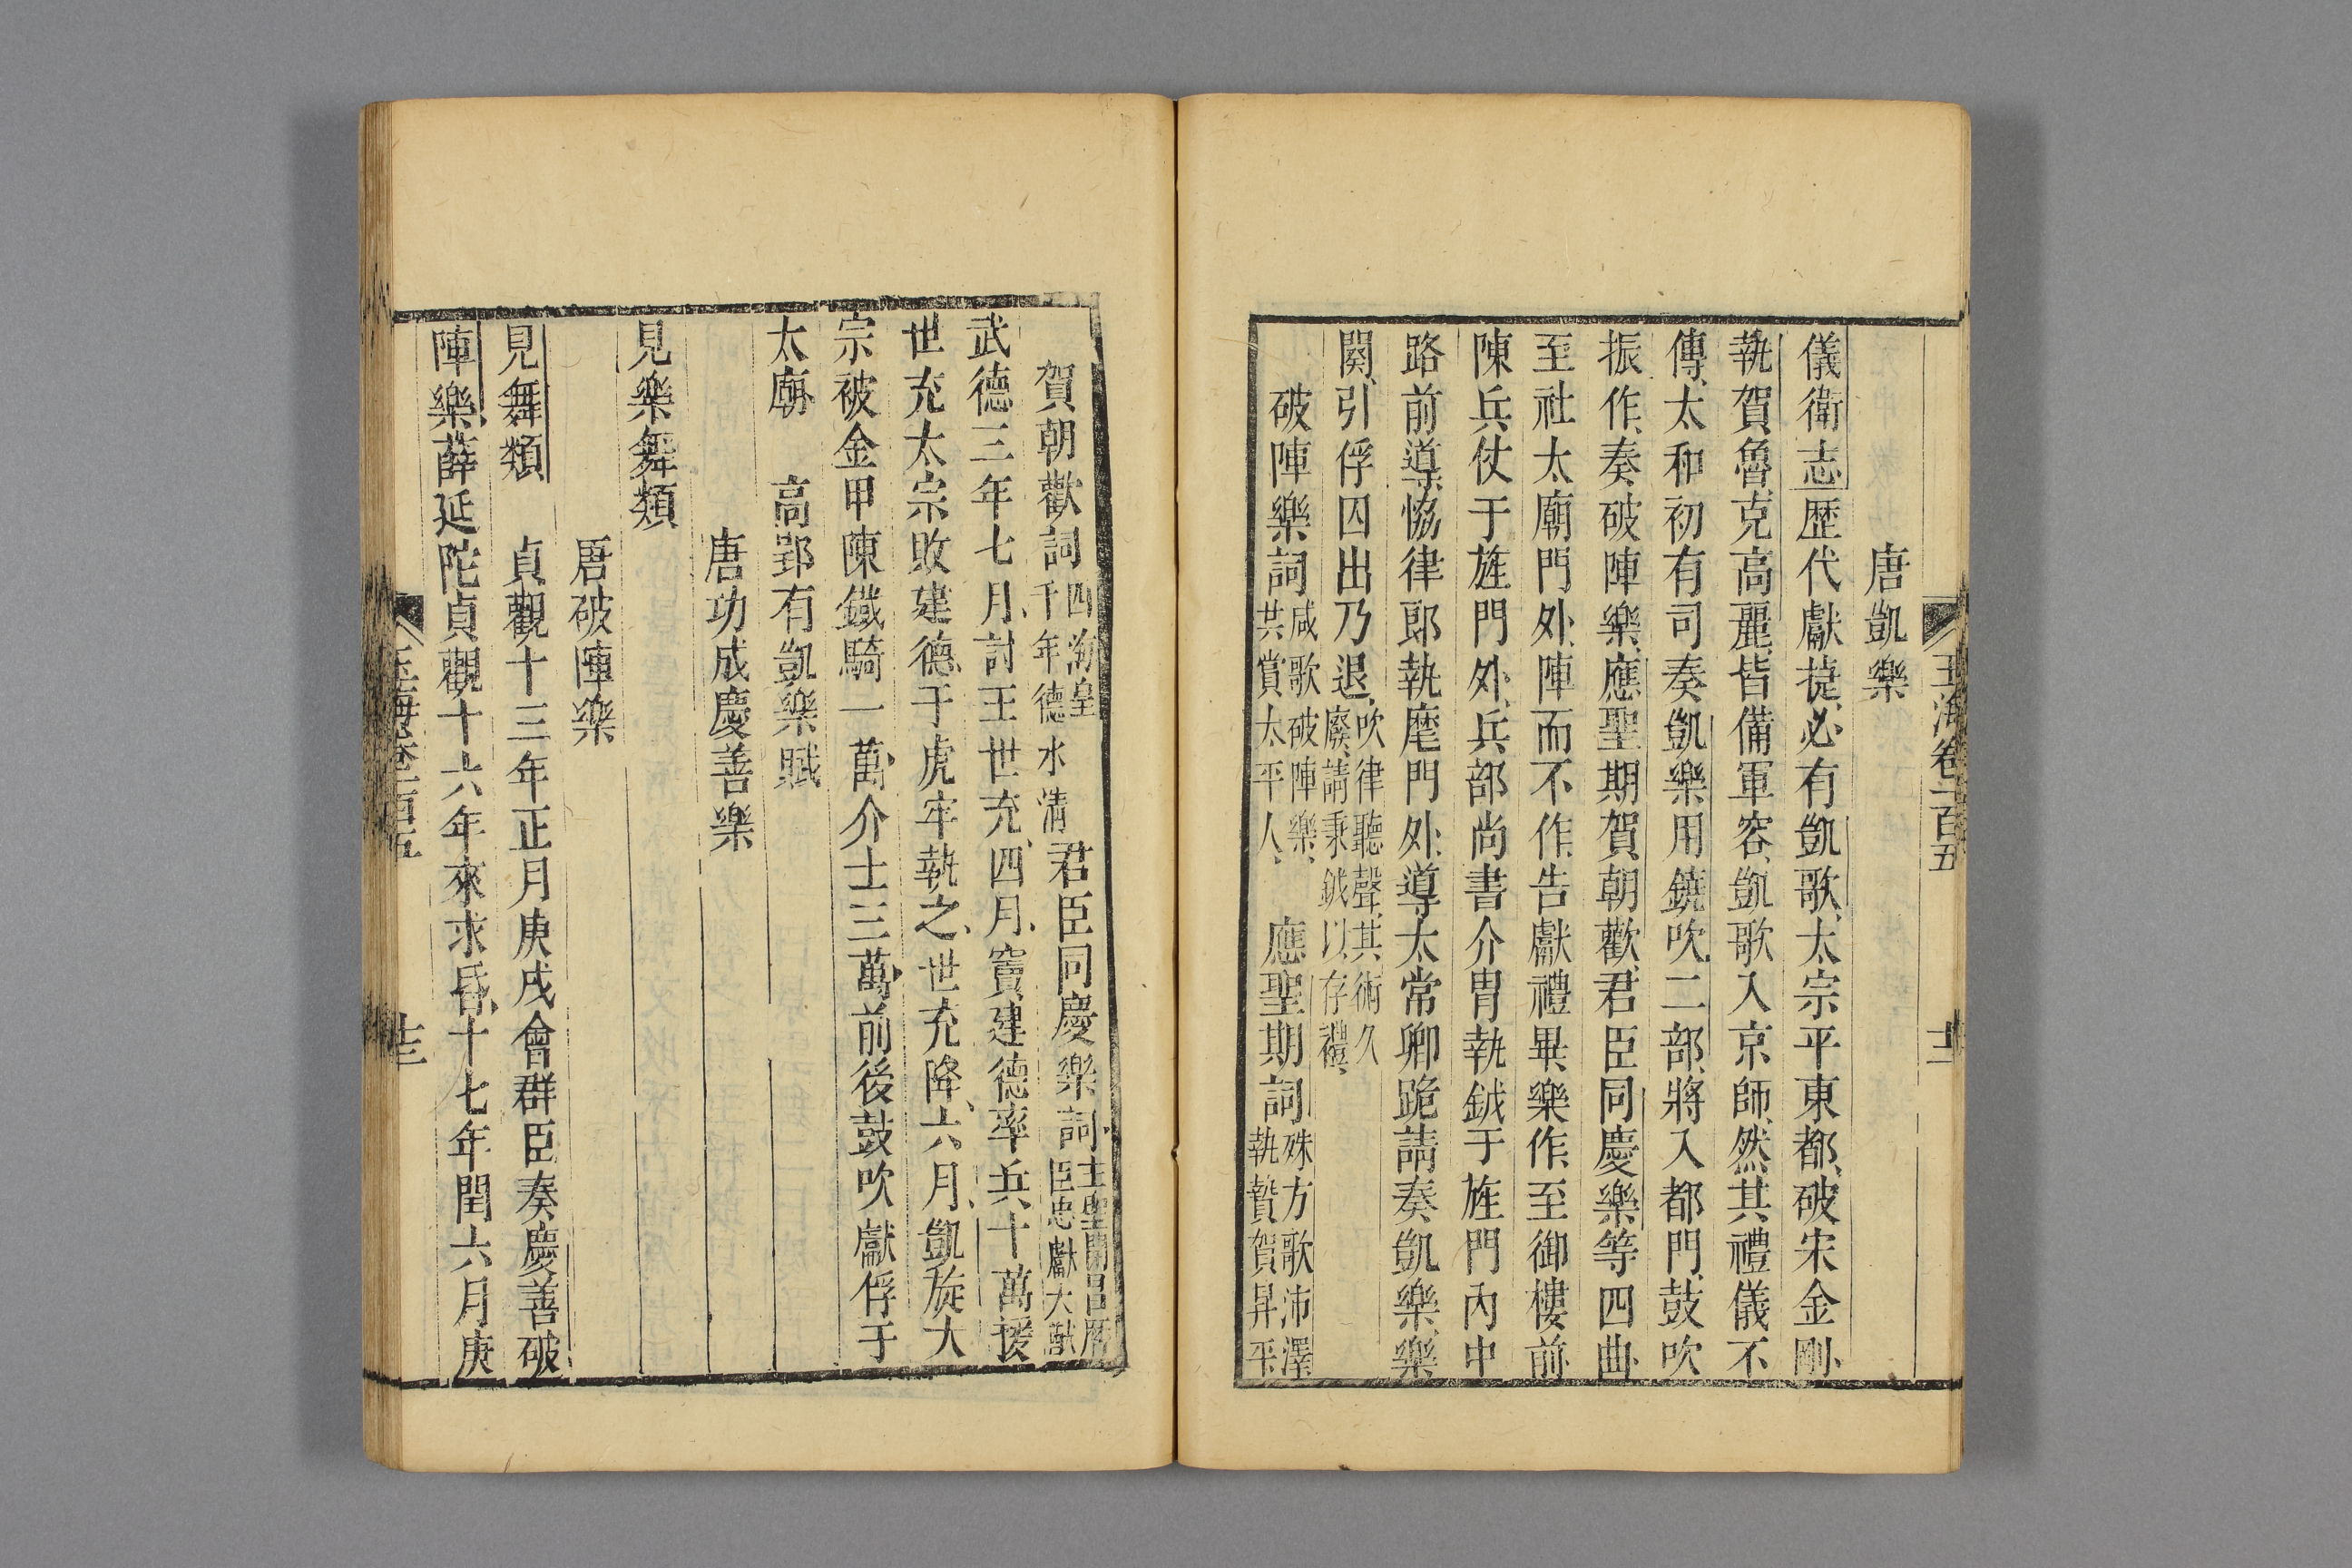 玉海卷一百五
十二
唐凱樂
儀衛志歷代獻捷必有凱歌太宗平東都破宋金剛
執賀魯克高麗皆備軍容凱歌入京師然其禮儀不
傳太和初有司奏凱樂用鐃吹二部將入都門鼓吹
振作奏破陣樂應聖期賀朝歡君臣同慶樂等四曲
至社太廟門外陣而不作告獻禮畢樂作至御樓前
陳兵仗于旌門外兵部尚書介胄執鉞于旌門內中
路前導協律郎執麾門外導太常卿跪請奏凱樂樂
闋引俘囚出乃退吹律聽聲其術久廢請秉鉞以存禮
破陣樂詞咸歌破陣樂共賞太平人 應聖期詞殊方歌沛澤執贄賀昇平
賀朝歡詞四海皇千年德水清 君臣同慶樂詞主聖開昌曆臣忠獻大猷
武德三年七月討王世充四月竇建德率兵十萬援
世充太宗敗建德于虎牢執之世充降六月凱旋太
宗被金甲陳鐵騎一萬介士三萬前後鼓吹獻俘于
太廟 高郢有凱樂賦
唐功成慶善樂
見樂舞類
唐破陣樂
見舞類 貞觀十三年正月庚戌會群臣奏慶善破
陣樂薛延陀貞觀十六年來求昏十七年閏六月庚
玉海卷一百五
十三